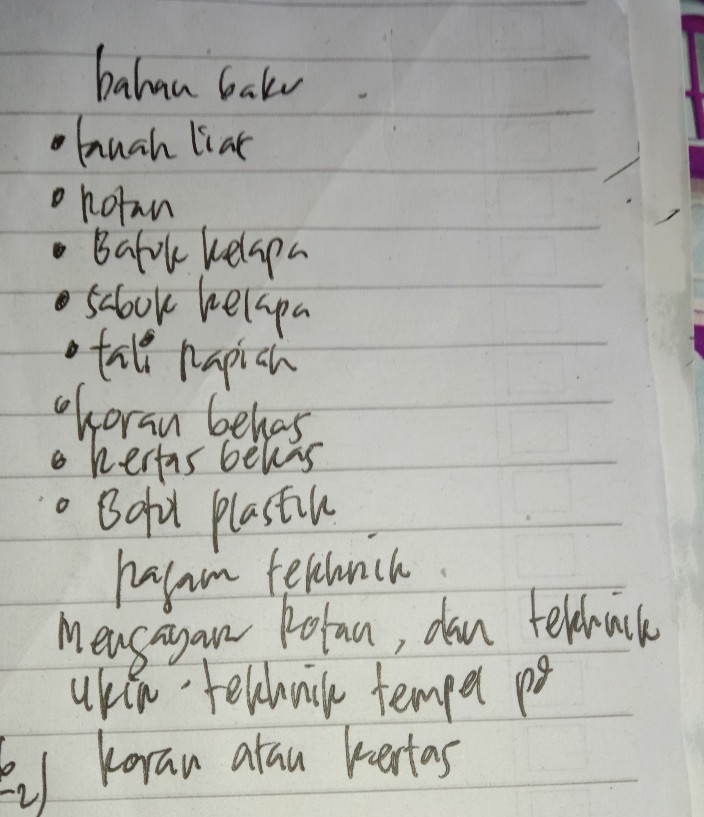 bahan baku
• tanah liat
• Rotan
• Batok kelapa
• Sabuk kelapa
• tali rapiah
• koran bekas
• kertas bekas
• Botol plastik
Ragam tekhnik
Mengayam Rotan, dan tekhnik
ukir. tekhnik tempel pd
koran atau kertas